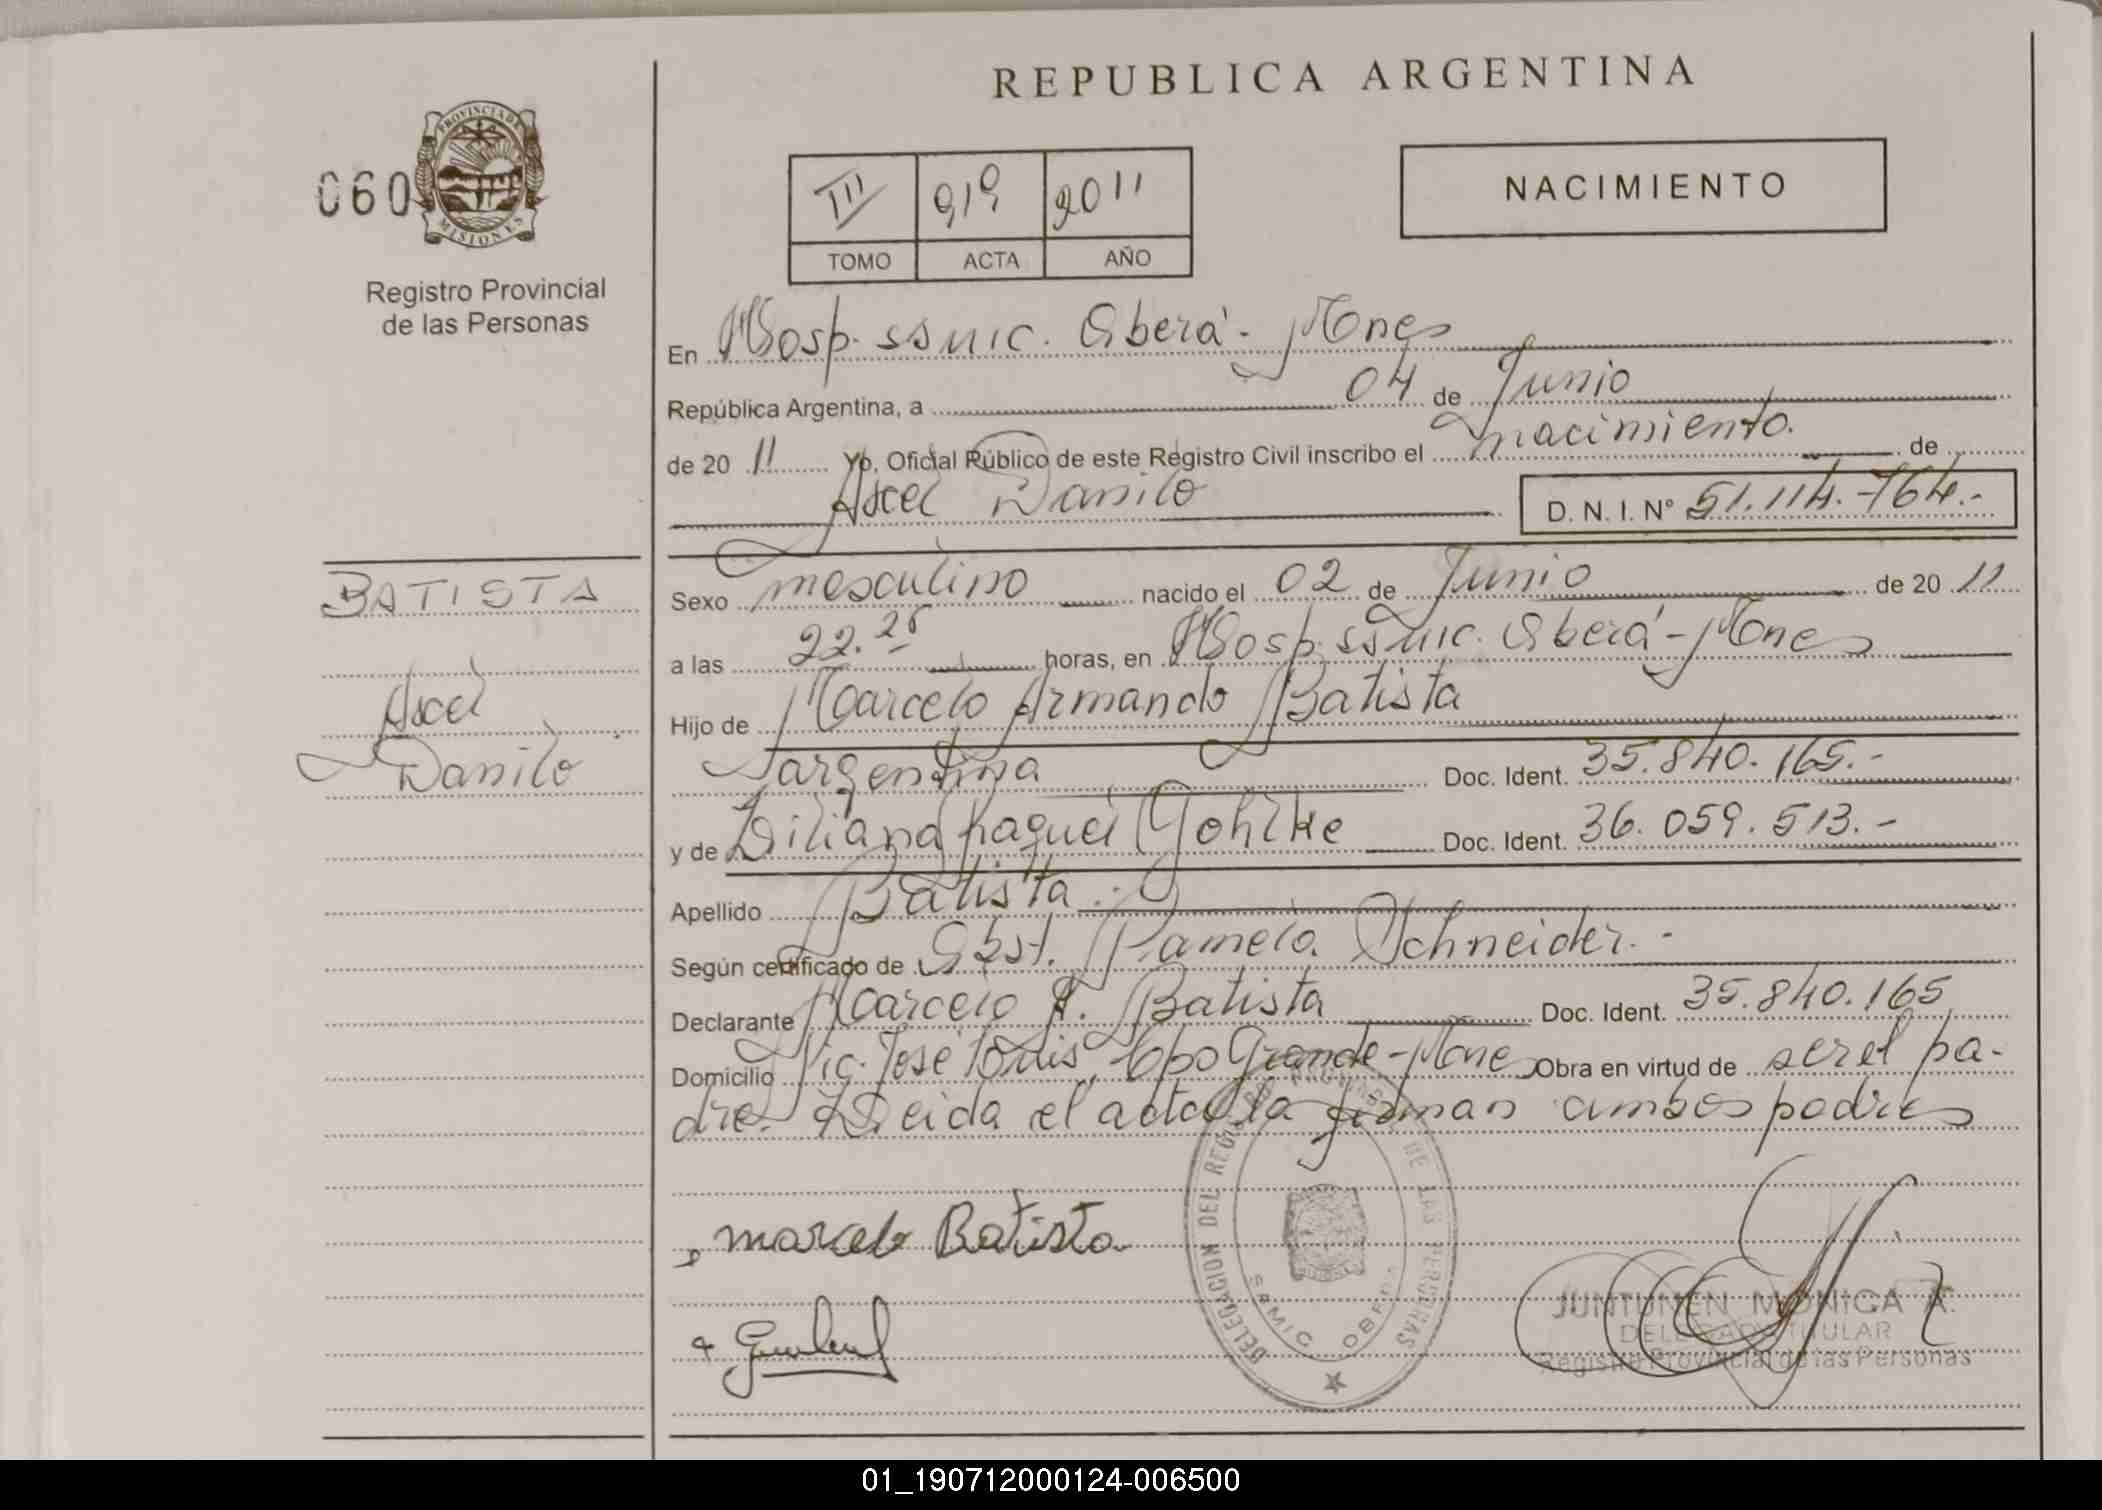 REPUBLICA ARGENTINA
060
PROVINCIA DE
MISIONES
Registro Provincial
de las Personas
III 919 2011
TOMO ACTA AÑO
NACIMIENTO
En Hosp. SSMIC. Oberá - Mnes
República Argentina, a 04 de Junio
de 20 11 Yo, Oficial Público de este Registro Civil inscribo el nacimiento. de
Axel Danilo D. N. I. Nº 51.114.764.-
BATISTA
Axel
Danilo
Sexo masculino nacido el 02 de Junio de 20 11
a las 22.25 horas, en Hosp. SSMIC. Oberá - Mnes
Hijo de Marcelo Armando Batista
argentina Doc. Ident. 35.840.165.-
y de Liliana Raquel Gohlke Doc. Ident. 36.059.513.-
Apellido Batista.
Según certificado de Obst. Pamela Schneider.-
Declarante Marcelo A. Batista Doc. Ident. 35.840.165
Domicilio Pic. José Cpo Grande - Mnes Obra en virtud de ser el pa-
dre. Leida el acta la firman ambos padres
marcelo Batista
DELEGACION DEL REGISTRO PROVINCIAL DE LAS PERSONAS
SAMIC OBERA
JUNTUNEN MONICA A.
DELEGADA TITULAR
Registro Provincial de las Personas
01_190712000124-006500